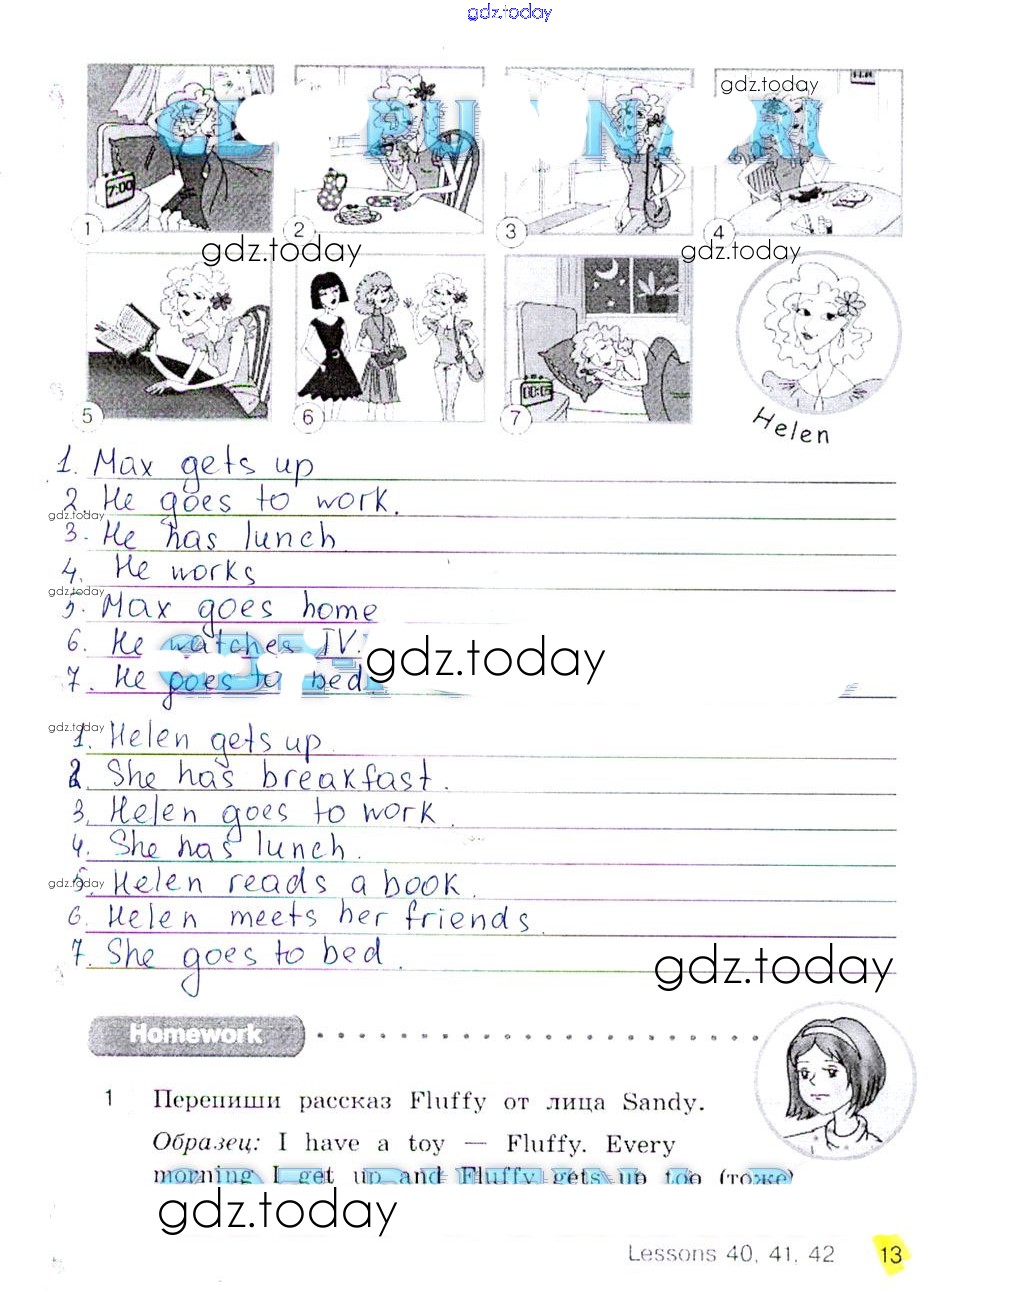 gdz.today
gdz.today
7:00
1
2
3
4
gdz.today
gdz.today
5
6
7
Helen
1. Max gets up
2. He goes to work.
gdz.today
3. He has lunch
4. He works
gdz.today
5. Max goes home
6. He watches TV.
gdz.today
7. He goes to bed.
gdz.today
1. Helen gets up
2. She has breakfast.
3. Helen goes to work.
4. She has lunch.
gdz.today
5. Helen reads a book.
6. Helen meets her friends.
7. She goes to bed.
gdz.today
Homework
1 Перепиши рассказ Fluffy от лица Sandy.
Образец: I have a toy — Fluffy. Every
morning I get up and Fluffy gets up too (тоже)
gdz.today
Lessons 40, 41, 42 13